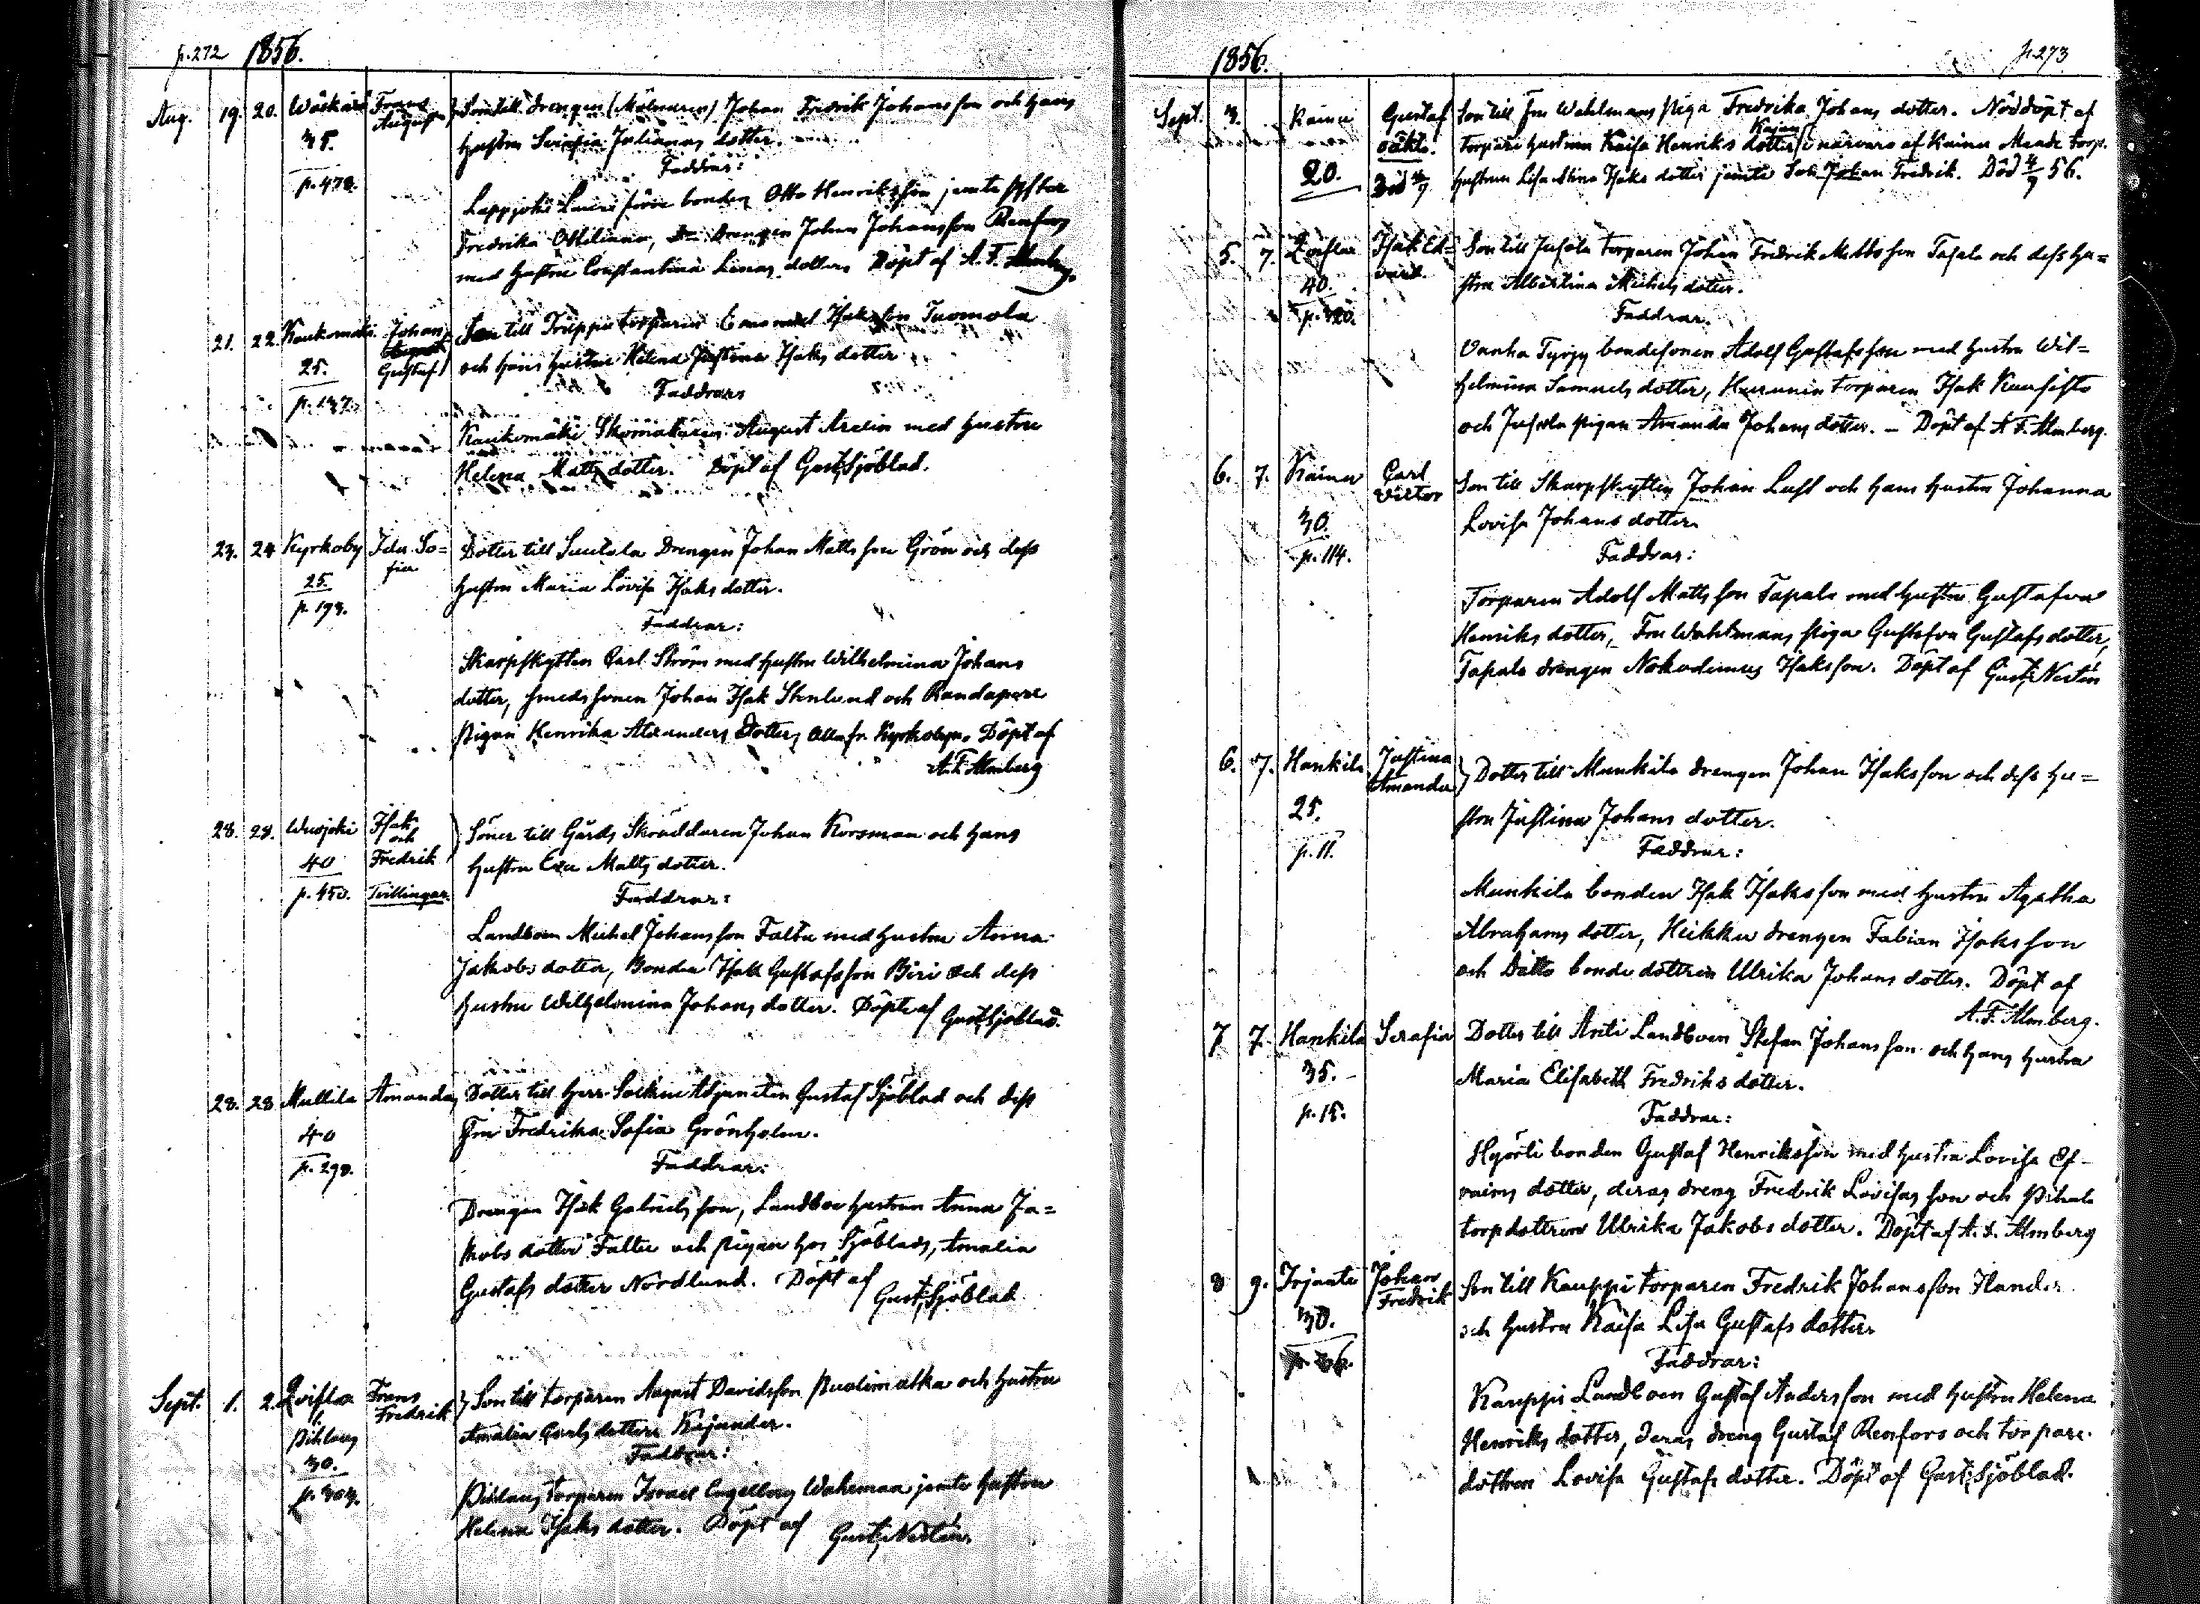 p. 272 1856.
Aug. 19. 20. Wäskäri Frans August Son till drengen (Mölnaren) Johan Fredrik Johansson och hans
35. hustru Serafia Julianas dotter.
p. 478. Faddrar:
Lappjoki Lauri förre bonden Otto Henriksson jemte syster
Fredrika Ottiliana, Drengen Johan Johansson Renfors
med hustru Constantina Linas dotter. Döpt af A. F. Almberg.
21. 22. Kaukomäki Johan Gustaf Son till Trappu torparen Emanuel Isaksson Tuomola
25. och hans hustru Helena Justina Isaks dotter
p. 137. Faddrar
Kaukomäki Skomakaren August Arelin med hustru
Helena Matts dotter. Döpt af Gust. Sjöblad.
23. 24 Kyrkoby Ida Sofia Dotter till Suutala Drengen Johan Mattsson Grön och dess
25. hustru Maria Lovisa Isaks dotter.
p. 193. Faddrar:
Skarpskytten Carl Ström med hustru Wilhelmina Johans
dotter, smedssonen Johan Isak Stenlund och
Pigan Henrika Alexanders dotter, alla fr. Kyrkobyn. Döpt af
A. F. Almberg
28. 29. Wuojoki Isak och Fredrik Söner till Gårds Skräddaren Johan Korsman och hans
40 hustru Eva Matts dotter.
p. 450. Tvillingar. Faddrar:
Landboen Michel Johansson Faltu med hustru Anna
Jakobs dotter, Bonden Isak Gustafsson Piri och dess
hustru Wilhelmina Johans dotter. Döpte af Gust. Sjöblad.
28. 28 Mullila Amanda Dotter till Herr Sockne Adjuncten Gustaf Sjöblad och dess
40 Fru Fredrika Sofia Grönholm.
p. 298. Faddrar:
Drengen Isak Gabrielsson, Landboe hustrun Anna Ja=
kobs dotter Faltu och pigan hos Sjöblads, Amalia
Gustafs dotter Nordlund. Döpt af Gust. Sjöblad
Sept. 1. 2. Frans Fredrik Son till torparen August Davidsson Puolimatka och hustru
Pihlaus Amalia Carls dotter Kajander.
30. Faddrar:
p. 303. Pihlaus torparen Israel Engelberg Wahemaa jemte hustru
Helena Isaks dotter. Döpt af Gust. Nestén.
1856. p. 273
Sept. 3. Rainu Gustaf oäkta. Son till Fru Wahlmans piga Fredrika Johans dotter. Nöddöpt af
torpare hustrun Kaisa Henriks dotter i närvaro af Torp.
20. Död 4/9 hustrun Lisa Stina Isaks dotter jemte Son Johan Fredrik. Död 4/9 56.
5. 7. Isak Edvard. Son till Jussila torparen Johan Fredrik Mattsson Tapala och dess hu=
40. stru Albertina Michels dotter.
Faddrar.
Vanha Tyrjy bondesonen Adolf Gustafsson med hustru Wil=
helmina Samuels dotter, torparen Isak
och Jussila pigan Amanda Johans dotter. – Döpt af A. F. Almberg.
6. 7. Rainu Carl Victor Son till Skarpskytten Johan Lust och hans hustru Johanna
30. Lovisa Johans dotter
p. 114. Faddrar:
Torparen Adolf Mattsson Tapala med hustru Gustafva
Henriks dotter, Fru Wahlmans piga Gustafva Gustafs dotter,
Tapala drengen Nokodimus Isaksson. Döpt af Gust. Nestén
6. 7. Hankila Justina Amanda Dotter till Munkila drengen Johan Isaksson och dess hu=
25. stru Justina Johans dotter.
p. 11. Faddrar:
Munkila bonden Isak Isaksson med hustru Agatha
Abrahams dotter, Heikku drengen Fabian Isaksson
och Ditto bonde dottren Ulrika Johans dotter. Döpt af
A. F. Almberg.
7 7. Hankila Serafia Dotter till Anti Landboen Stefan Johansson och hans hustru
35. Maria Elisabeth Fredriks dotter.
p. 15. Faddrar:
Hyörli bonden Gustaf Henriksson med hustru Lovisa Ef-
raims dotter, deras dreng Fredrik Lovisas son och Pihala
torpdottren Ulrika Jakobs dotter. Döpt af A. F. Almberg
8 9. Irjanta Johan Fredrik Son till Kauppi torparen Fredrik Johansson
30. och hustru Kaisa Lisa Gustafs dotter
Faddrar:
Kauppi Landboen Gustaf Andersson med hustru Helena
Henriks dotter, deras dreng Gustaf Renfors och torpare
dottren Lovisa Gustafs dotter. Döpt af Gust. Sjöblad.